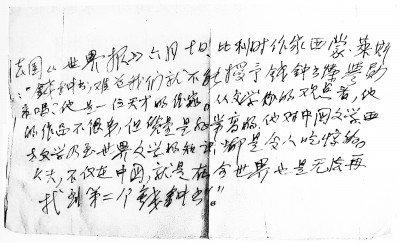 法国《世界报》六月十日比利时作家西蒙·莱斯
:“钱钟书,难道我们就不能授予钱钟书荣誉勋
章吗?他是一位天才的作家。从文学的观点看,他
的作品不很多,但质量是非常高的。他对中国文学西
方文学乃至世界文学的知识,都是令人吃惊的
广大,不仅在中国,就是在全世界也是无法再
找到第二个钱钟书”。